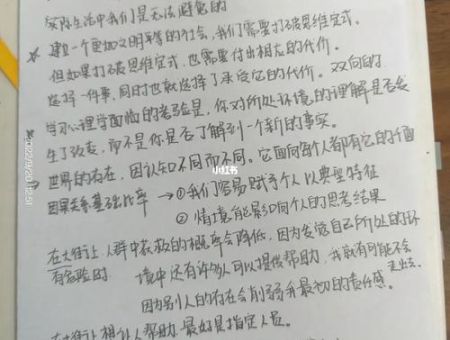 实际生活中我们是无法避免的
建立一个更加文明平等的社会,我们需要打破思维定式。
但如果打破思维定式,也需要付出相应的代价。
选择一件事,同时也就选择了承受它的代价。双向的
学习心理学面临的考验是,你对所处环境的理解是否发
生了改变,而不是你是否了解到一个新的事实。
世界的存在,因认知不同而不同。它面向每个人都有它的面
因果关系基础比率 → ①我们容易赋予个人以典型特征
②情境能影响个人的思考结果
小红书
在大街上人群中获救的概率会降低,因为发觉自己所处的环
有危险时 境中还有许多人可以提供帮助,我就有可能不会
走出去.
因为别人的存在会削弱我最初的责任感。
在大街上想让人帮助,最好是指定人员。